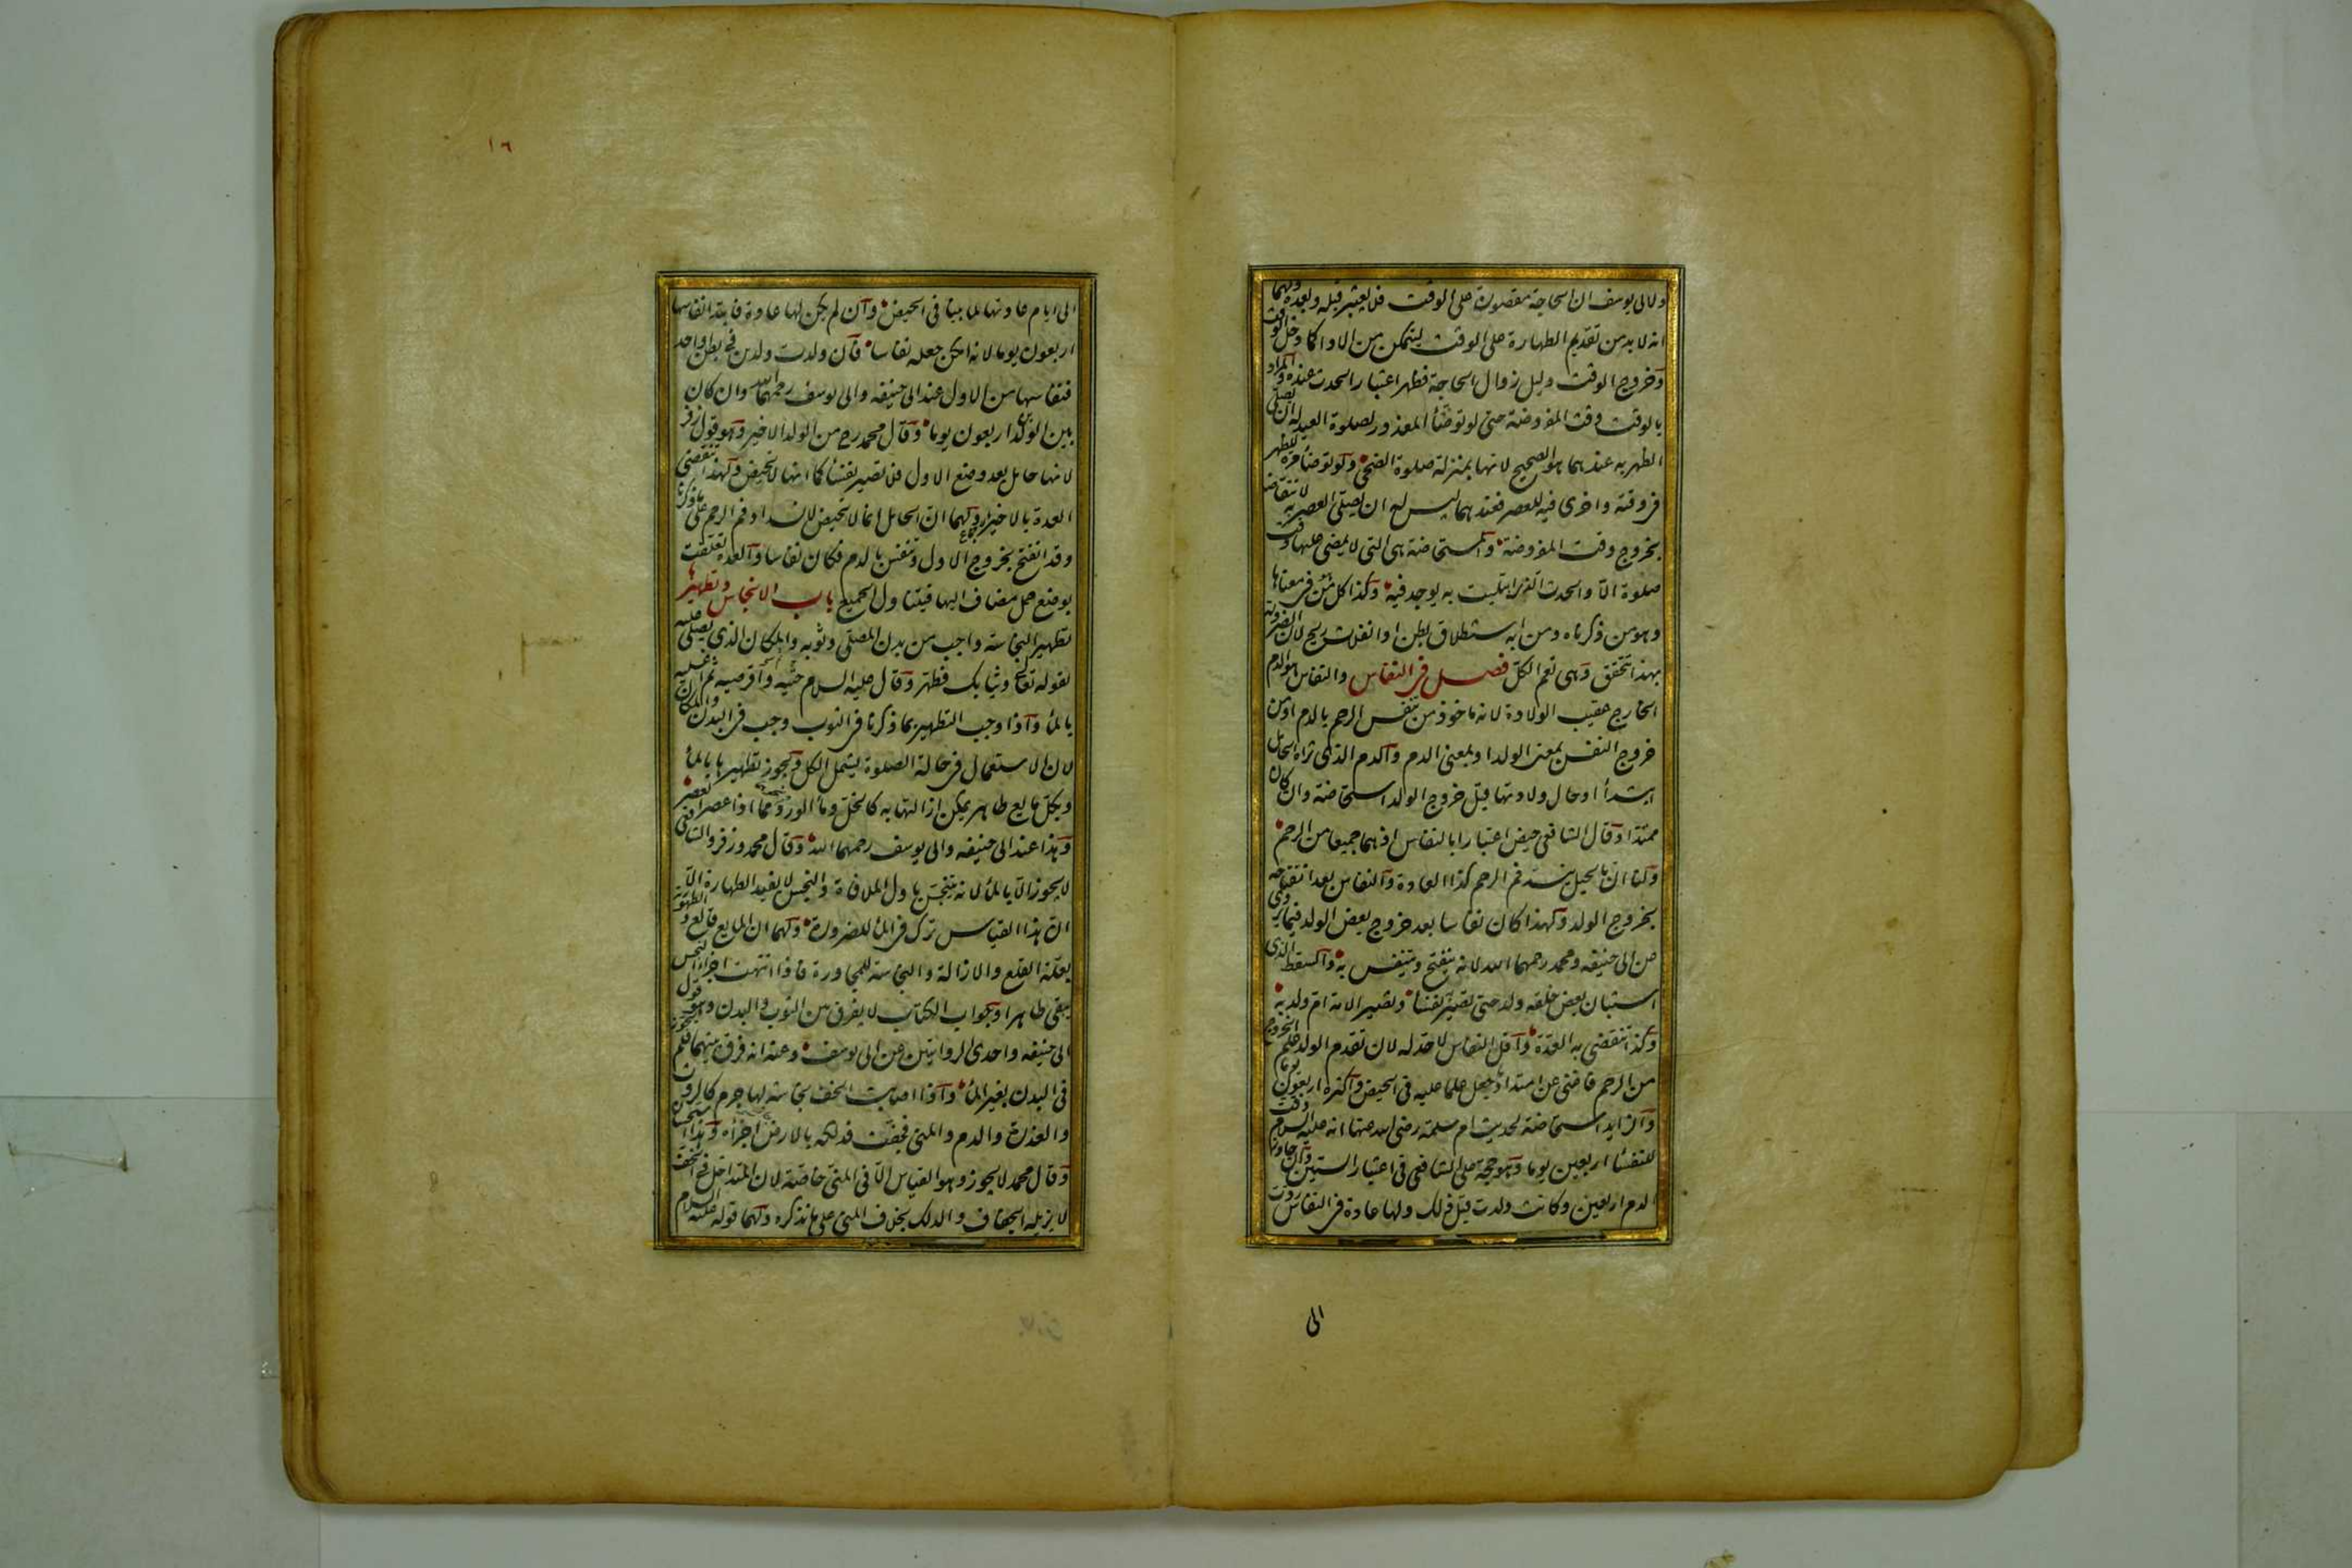 ولابی یوسف ان الحاجة مقصورة علی الوقت فلا یعتبر قبله وبعده ولهما
انه لا بد من تقدیم الطهارة علی الوقت لیتمکن من الاداء کما دخل الوقت
وخروج الوقت دلیل زوال الحاجة فظهر اعتبار الحدث عنده والمراد
بالوقت وقت المفروضة حتی لو توضأ المعذور لصلوة العید له ان یصلی
الظهر به عندهما هو الصحیح لانها بمنزلة صلوة الضحی ولو توضأ مرة للظهر
فی وقته واخری فیه للعصر فعندهما لیس له ان یصلی العصر به لانتقاضه
بخروج وقت المفروضة والمستحاضة هی التی لا یمضی علیها وقت
صلوة الا والحدث الذی ابتلیت به یوجد فیه وکذا کل من فی معناها
وهو من ذکرناه ومن به استطلاق بطن او انفلات ریح لان الضرورة
بهذا تتحقق وهی تعم الکل فصل فی النفاس والنفاس هو الدم
الخارج عقیب الولادة لانه ماخوذ من تنفس الرحم بالدم او من
خروج النفس بمعنی الولد او بمعنی الدم والدم الذی تراه الحامل
ابتداءً او حال ولادتها قبل خروج الولد استحاضة وان کان
ممتدا وقال الشافعی حیض اعتبارا بالنفاس اذ هما جمیعا من الرحم
ولنا ان بالحبل ینسد فم الرحم کذا العادة والنفاس بعد انفتاحه
بخروج الولد ولهذا کان نفاسا بعد خروج بعض الولد فیما روی
عن ابی حنیفه ومحمد رحمهما الله لانه ینفتح ویتنفس به والسقط الذی
استبان بعض خلقه ولد حتی تصیر نفسا وتصیر الامة ام ولد به
وکذا تنقضی به العدة واقل النفاس لا حد له لان تقدم الولد علم الخروج
من الرحم فاغنی عن امتداد جعل علما علیه فی الحیض واکثره اربعون یوما
والزاید استحاضة لحدیث ام سلمة رضی الله عنها انه علیه السلام وقت
للنفسا اربعین یوما وهو حجة علی الشافعی فی اعتبار الستین وان جاوز
الدم اربعین وکانت ولدت قبل ذلک ولها عادة فی النفاس ردت
الی
١٦
الی ایام عادتها لما بینا فی الحیض وان لم یکن لها عادة فابتداء نفاسها
اربعون یوما لانه امکن جعله نفاسا فان ولدت ولدین فی بطن واحد
فنفاسها من الاول عند ابی حنیفه وابی یوسف رحمهما الله وان کان
بین الولدین اربعون یوما وقال محمد رح من الولد الاخیر وهو قول زفر
لانها حامل بعد وضع الاول فلا تصیر نفسا کما انها لا تحیض ولهذا تنقضی
العدة بالاخیر ولهما ان الحامل انما لا تحیض لانسداد فم الرحم علی ما ذکرنا
وقد انفتح بخروج الاول وتنفس بالدم فکان نفاسا والعدة تعلقت
بوضع حمل مضاف الیها فیتناول الجمیع باب الانجاس وتطهیرها
تطهیر النجاسة واجب من بدن المصلی وثوبه والمکان الذی یصلی علیه
لقوله تعالی وثیابک فطهر وقال علیه السلام حتیه واقرصیه ثم اغسلیه
بالماء واذا وجب التطهیر بما ذکرنا فی الثوب وجب فی البدن والمکان
لان الاستعمال فی حالة الصلوة یشمل الکل ویجوز تطهیرها بالماء
وبکل مایع طاهر یمکن ازالتها به کالخل وماء الورد مما اذا عصر انعصر
وهذا عند ابی حنیفه وابی یوسف رحمهما الله وقال محمد وزفر والشافعی
لا یجوز الا بالماء لانه یتنجس باول الملاقاة والنجس لا یفید الطهارة الا
ان هذا القیاس ترک فی الماء للضرورة ولهما ان المایع قالع والطهوریة
بعلة القلع والازالة والنجاسة للمجاورة فاذا انتهت اجزاء النجس
یبقی طاهرا وجواب الکتاب لا یفرق بین الثوب والبدن وهو قول
ابی حنیفه واحدی الروایتین عن ابی یوسف وعنه انه فرق بینهما فلم یجوز
فی البدن بغیر الماء واذا اصابت الخف نجاسة لها جرم کالروث
والعذرة والدم والمنی فجفت فدلکه بالارض اجزأه وهذا استحسان
وقال محمد لا یجوز وهو القیاس الا فی المنی خاصة لان المتداخل فی الخف
لا یزیله الجفاف والدلک بخلاف المنی علی ما نذکره ولهما قوله علیه السلام